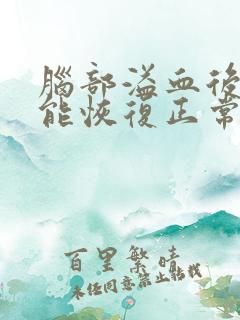 腦部溢血後
能恢復正常
百里繁晴
未任同意禁止轉載